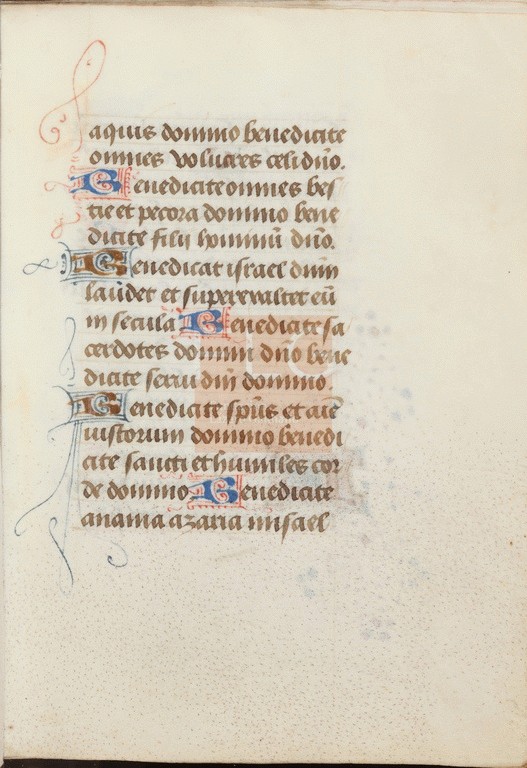 aquis domino benedicite
omnes volucres celi dño.
Benedicite omnes bes
tie et pecora domino bene
dicite filii hominū dño.
Benedicat israel dnm
laudet et superexaltet eū
in secula Benedicite sa
cerdotes domini dño bene
dicite serui dñi domino.
Benedicite sp̄us et aīe
iustorum domino benedi
cite sancti et humiles cor
de domino Benedicite
anania azaria misael